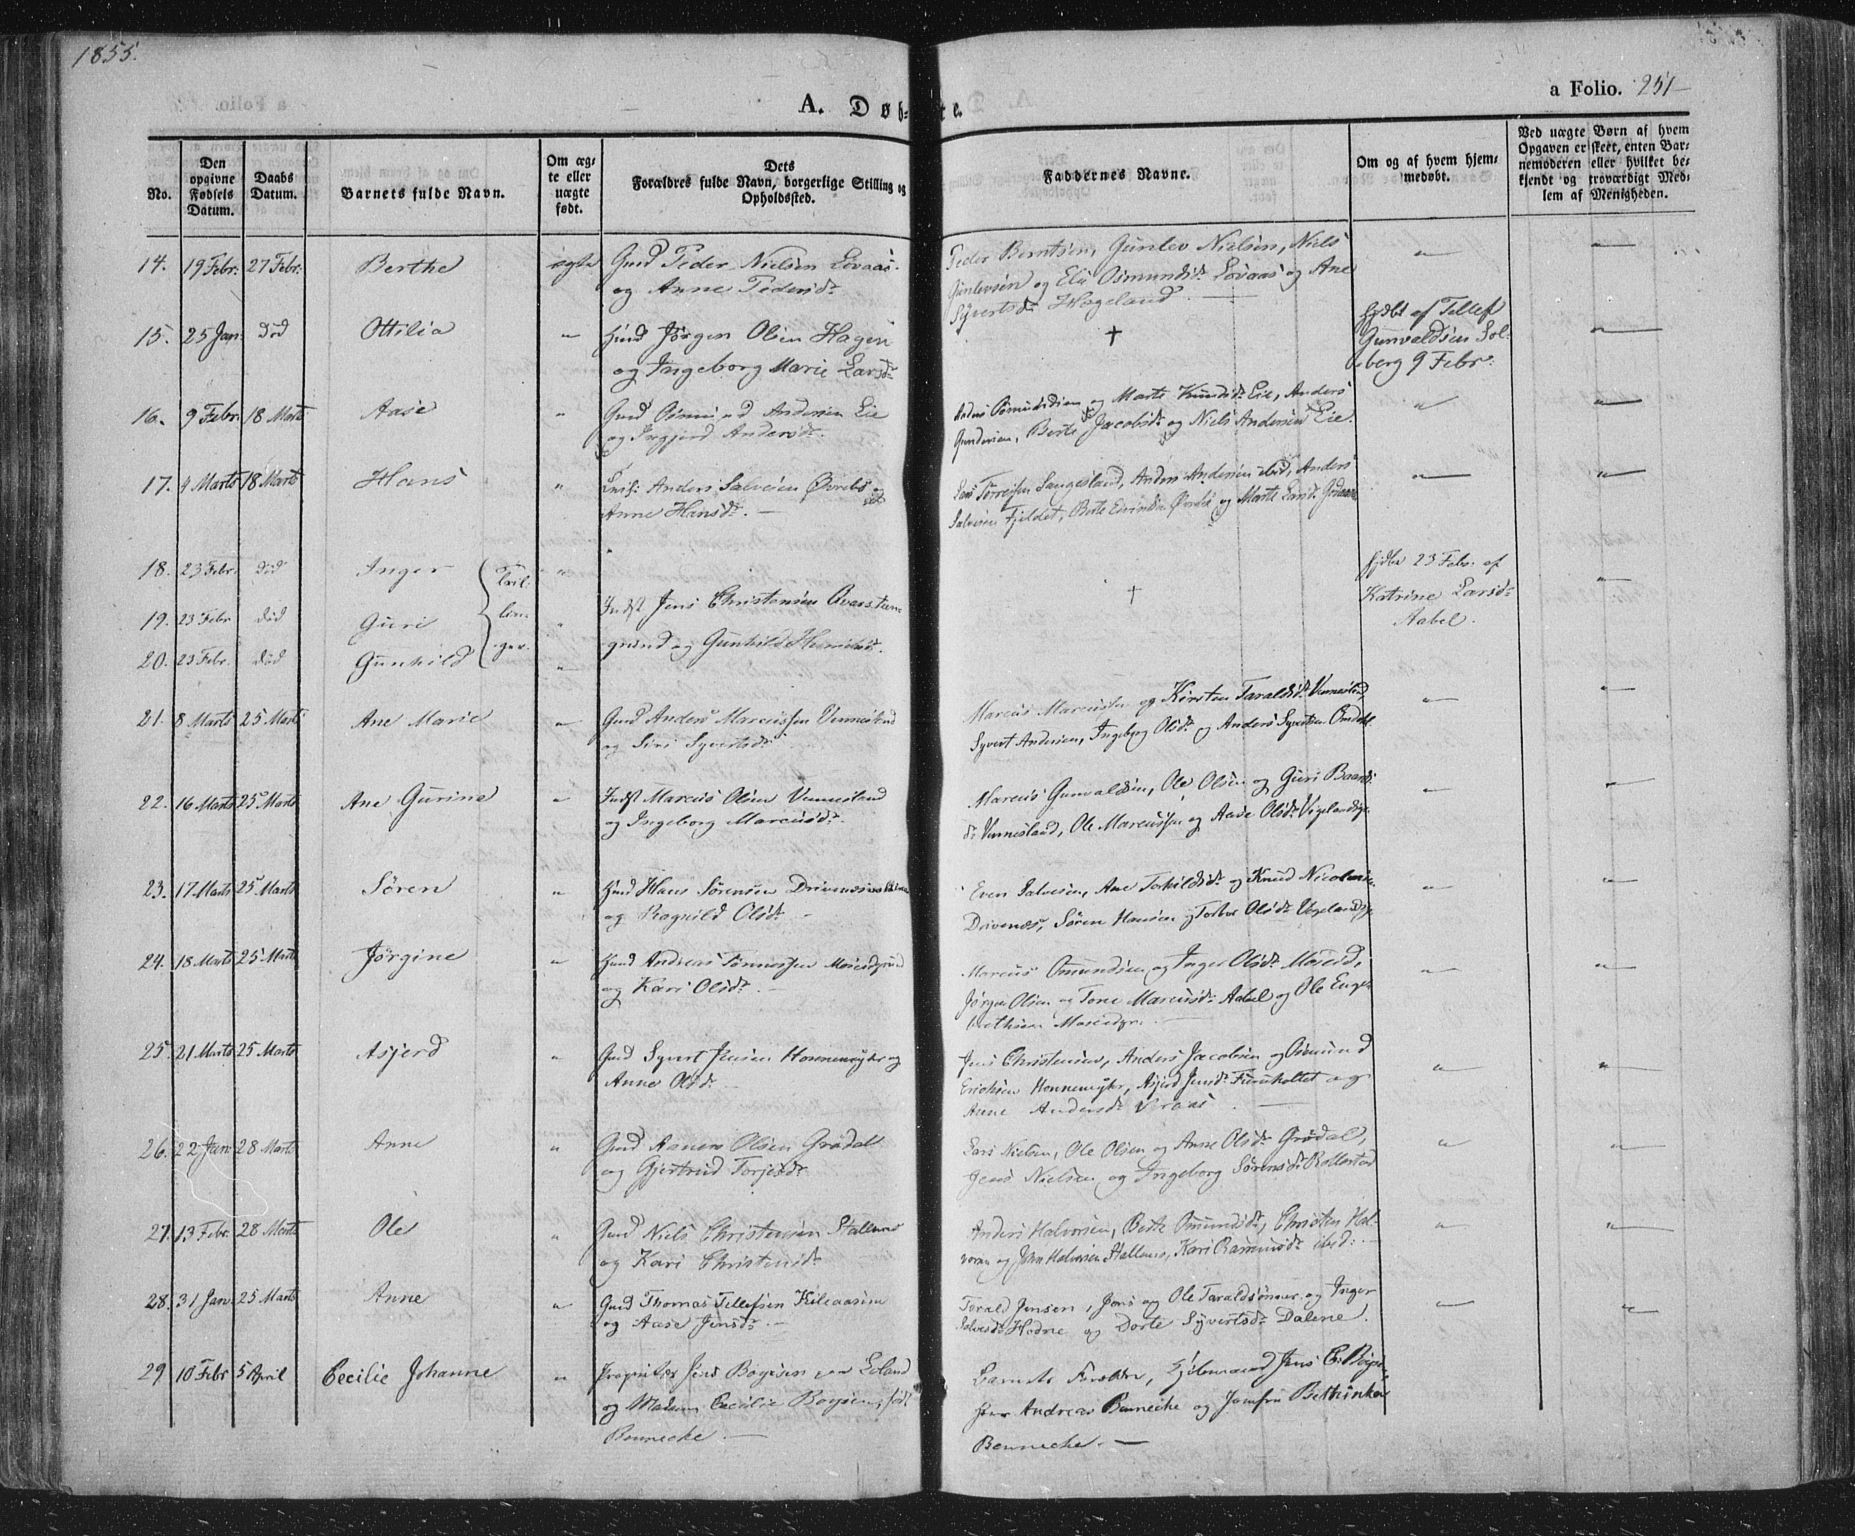 1855.
a Folio. 251
A. Døbte.
No.
Den opgivne Fødsels Datum.
Daabs Datum.
Barnets fulde Navn.
Om ægte eller uægte født.
Dets Forældres fulde Navn, borgerlige Stilling og Opholdssted.
Faddernes Navne.
Om og af hvem hjemmedøbt.
Ved uægte Børn af hvem Opgaven er skeet, enten Barnemoderen eller hvilket bekjendt og troværdigt Medlem af Menigheden.
14. 19 Febr. 27 Febr. Berthe ægte Gmd Peder Nielsen Lovaas
og Anne Pedersdr.
Peder Berntsen, Gunlev Nielsen, Niels
Gunlevsen og Osmundsdr. Lovaas og Ane
Syvertsdr. Hageland
15. 25 Jan. død Ottilia " Huusmd Jørgen Olsen Hagen
og Ingeborg Marie Larsdr.
†
hjdbt af Tellef
Gunvaldsen Sol-
berg 9 Febr.
16. 9 Febr. 18 Marts Aase " Gmd Osmund Andersen Eie
og Ingjerd Andersdr.
og Marte Knudsdr. Eie, Anders
Gundersen, Berte Jacobsdr. og Niels Andersen Eie.
17. 4 Marts 18 Marts Hans " Anders Salvesen Øvrebø
Anne Hansdr. —
Lars Langeland, Anders Andersen ibid, Anders
Salvesen Fjeldet, Berte Øvrebø og Marte Larsdr.
18. 23 Febr. død Inger "
hjdbt 23 Febr. af
Katrine Larsdr.
Aabel.
19. 23 Febr. død Guri " Indst Jens Christensen
†
20. 23 Febr. død Gunhild " grund og Gunhild
Tril-
lin-
ger.
21. 8 Marts 25 Marts Ane Marie " Gmd Anders Marcussen Vennesland
og Siri Syvertsdr.
Marcus Marcussen og Kirsten Taraldsdr. Vennesland,
Syvert Andersen, Ingeborg Olsdr. og Anders Syvertsen Omdal
22. 16 Marts 25 Marts Ane Gurine " Indst Marcus Olsen Vennesland
og Ingeborg Marcusdr.
Marcus Gunvaldsen, Ole Olsen og Guri Baards-
dr. Vennesland, Ole Marcussen og Aase Olsdr. Vigeland
23. 17 Marts 25 Marts Søren " Huusmd Hans Sørensen Drivenes
og Ragnild Olsdr. —
Even Salvesen, Ane Torkildsdr. og Knud
Drivenes, Søren Hansen og Olsdr.
24. 18 Marts 25 Marts Jørgine " Huusmd Andreas Tønnessen
og Kari Olsdr. —
Marcus Omundsen og Inger Olsdr. Moseid,
Jørgen Olsen og Tone Marcusdr. Aabel og Ole Enge-
brethsen
25. 21 Marts 25 Marts Asjerd " Gmd Syvert Jensen Honnemyhr og
Anne Olsdr. —
Jens Christensen, Anders Jacobsen og Osmund
Erichsen Honnemyhr, Asjerd Jensdr. Furuholtet og
Anne Andersdr. Vraas. —
26. 22 Jan. 28 Marts Anne " Gmd Aanen Olsen Grødal
og Gjertrud Torjesdr.
Lars Nielsen, Ole Olsen og Anne Olsdr. Grødal,
Jens Nielsen og Ingeborg Sørensdr. Rollestad
27. 13 Febr. 28 Marts Ole " Gmd Niels Christensen Stallemo
og Kari Christensdr.
Anders Halvorsen, Berte Omundsdr., Christen Hal-
vorsen og John Halvorsen Stallemo, Kari Rasmusdr. ibid. —
28. 31 Jan. 25 Marts Anne " Gmd Thomas Tellefsen Kileaasen
og Aase Jensdr. —
Torald Jensen, Jens og Ole Taraldsønner og Inger
Salvesdr. Hodne og Dorte Syvertsdr. Dalene.
29 10 Febr 5 April Cecilie Johanne " Proprietær Jens Boyesen paa Eeland
og Madam Cecilie Boysen, født
Bennecke. —
Barnets Forældre, Jens C. Boysen,
Herr Andreas Bennecke og Jomfru Bethinka
Bennecke. —